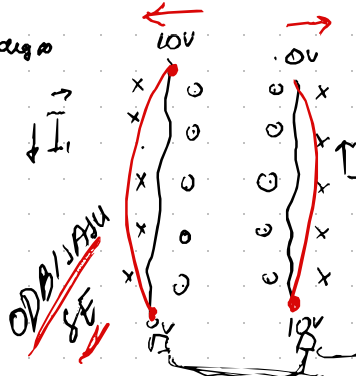 10V
0V
I₁
ODBIJAJU
SE
0V
10V